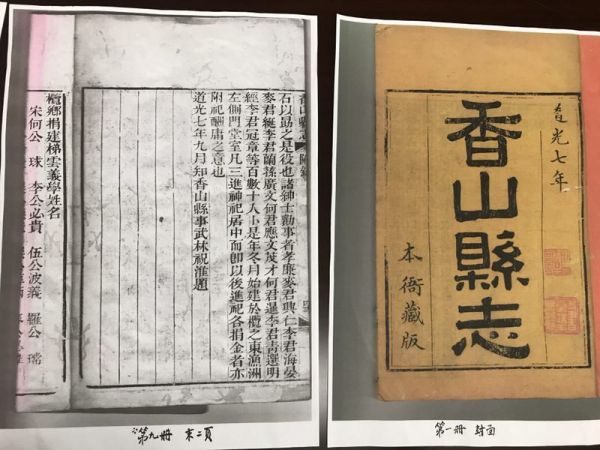 石以勗之是役也諸紳士勸事者孝廉麥君興仁李君海晏
李君蘭孫廣文何君應文茂才何君暹李君靑選明
經李君冠章等百數十人卜是年冬月始建於欖之東漁洲
左側門堂室凡三進神祀居中而卽以後進祀各捐金者亦
附祀酬庸之意也
道光七年九月知香山縣事武林祝淮題
欖鄉捐建梯雲義學姓名
宋何公 球 李公必貴 伍公波義 羅公
第九冊 末二頁
道光七年
香山縣志
本衙藏版
第一冊 封面